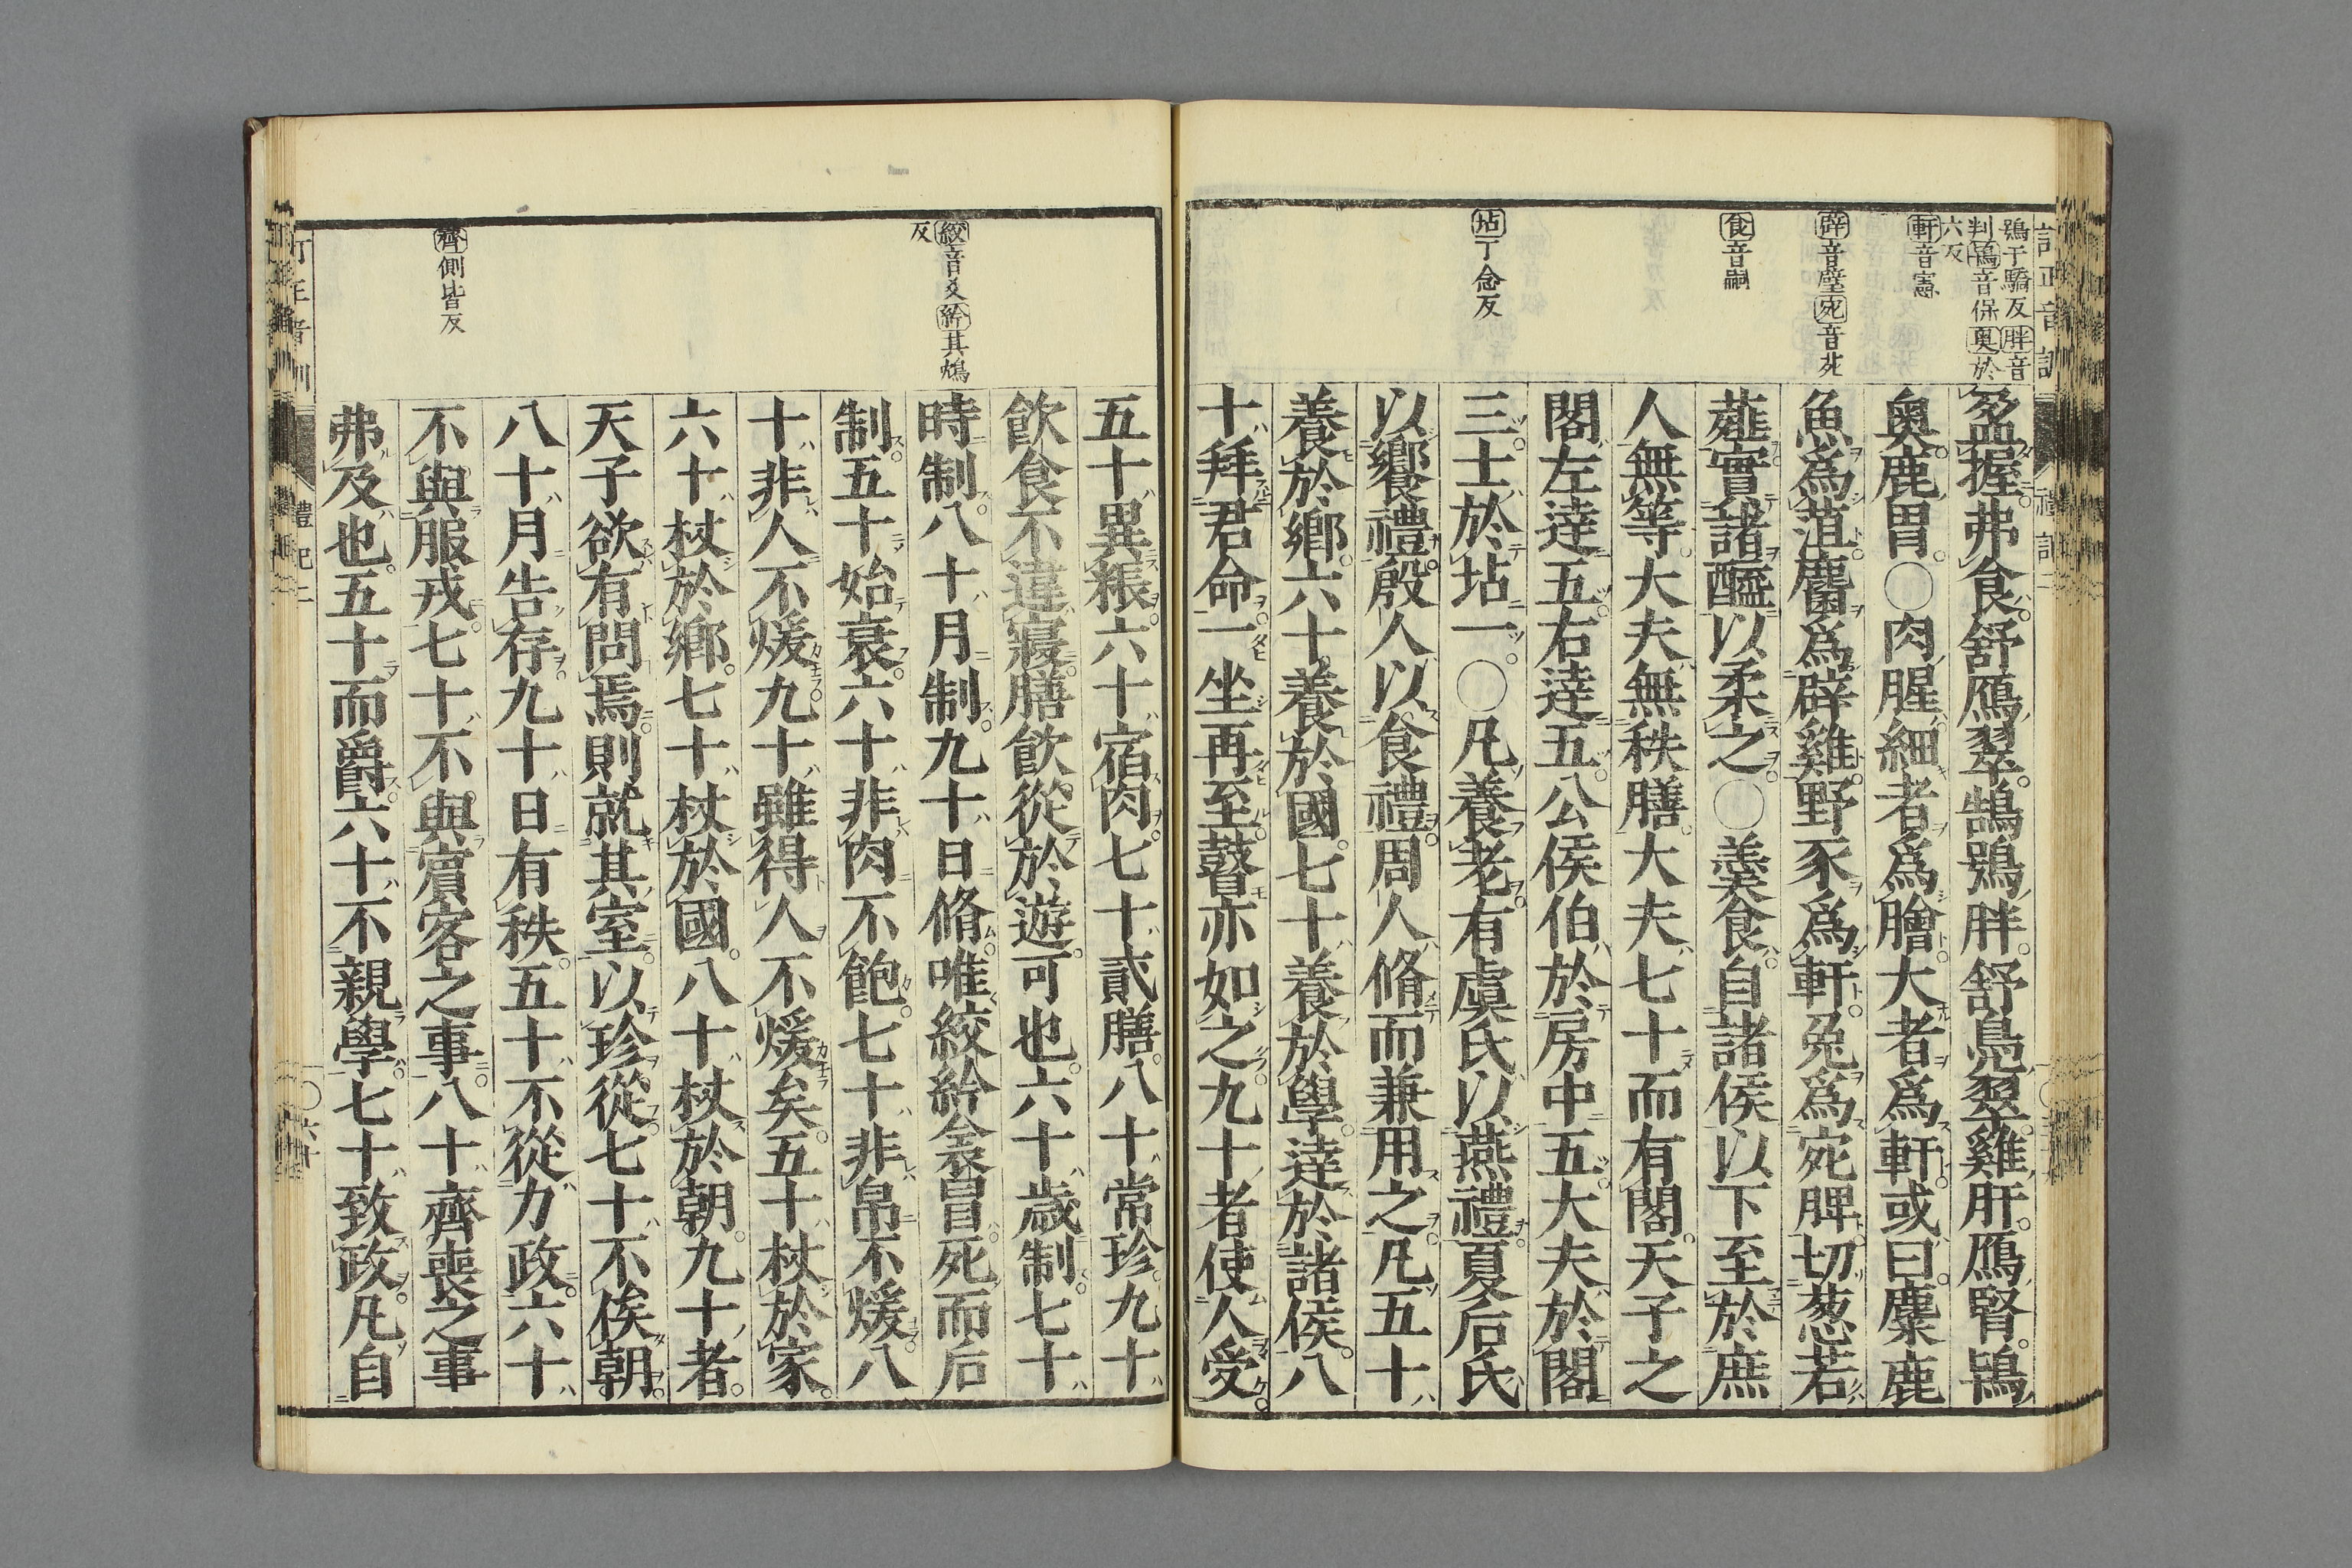 鴞于驕反胖音
判鴇音保奧於
六反
軒音憲
辟音壁宛音苑
食音嗣
坫丁念反
盈握弗食舒鴈翠鵠鴞胖舒鳧翠雞肝鴈腎鴇
奧鹿胃〇肉腥細者爲膾大者爲軒或曰麋鹿
魚爲菹麕爲辟雞野豕爲軒兔爲宛脾切葱若
薤實諸醯以柔之〇羹食自諸侯以下至於庶
人無等大夫無秩膳大夫七十而有閣天子之
閣左達五右達五公侯伯於房中五大夫於閣
三士於坫一〇凡養老有虞氏以燕禮夏后氏
以饗禮殷人以食禮周人脩而兼用之凡五十
養於鄉六十養於國七十養於學達於諸侯八
十拜君命一坐再至瞽亦如之九十者使人受
絞音爻紟其鴆
反
齊側皆反
五十異粻六十宿肉七十貳膳八十常珍九十
飲食不違寢膳飲從於遊可也六十歲制七十
時制八十月制九十日脩唯絞紟衾冒死而后
制五十始衰六十非肉不飽七十非帛不煖八
十非人不煖九十雖得人不煖矣五十杖於家
六十杖於鄉七十杖於國八十杖於朝九十者
天子欲有問焉則就其室以珍從七十不俟朝
八十月告存九十日有秩五十不從力政六十
不與服戎七十不與賓客之事八十齊喪之事
弗及也五十而爵六十不親學七十致政凡自